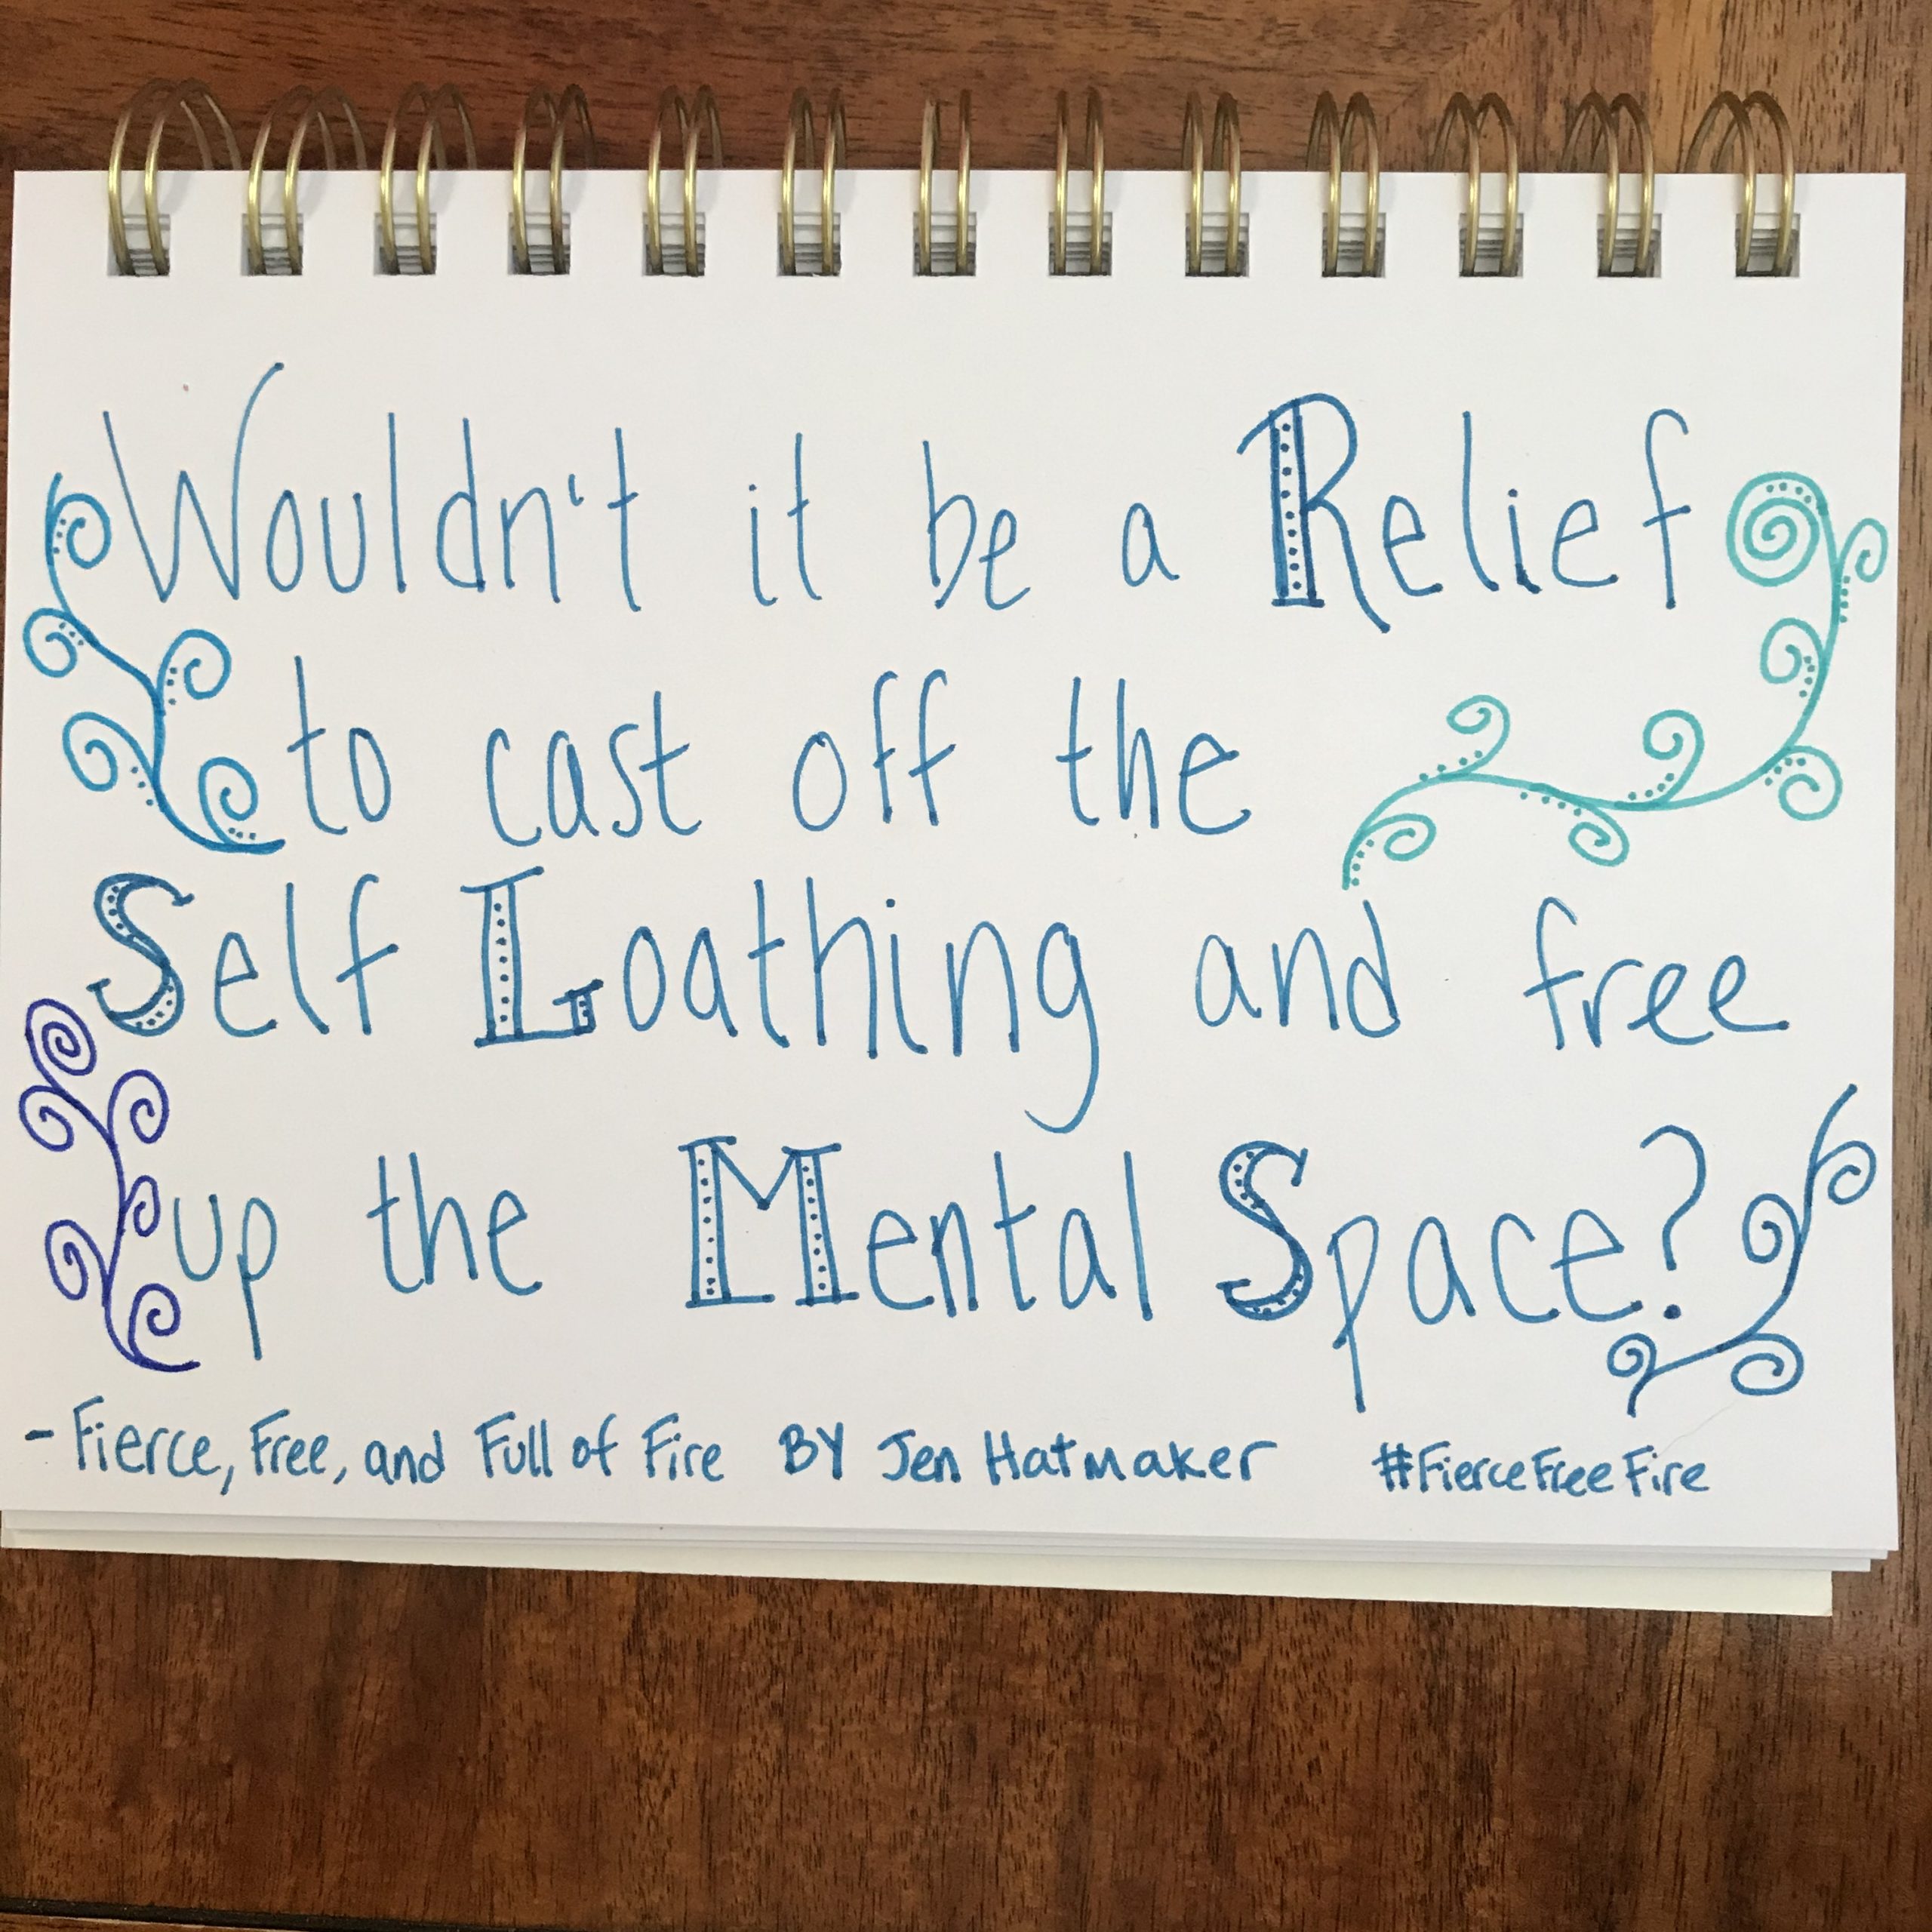 Wouldn't it be a Relief
to cast off the
Self Loathing and free
up the Mental Space?
- Fierce, Free, and Full of Fire BY Jen Hatmaker #FierceFreeFire